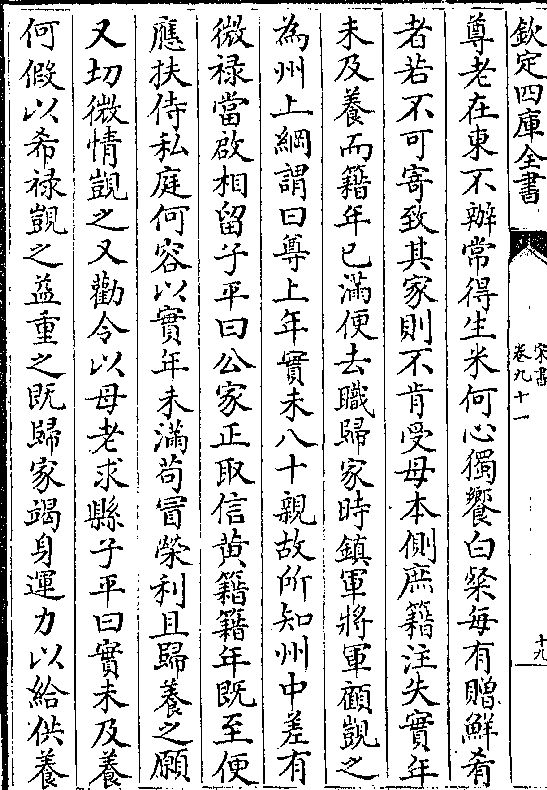 欽定四庫全書
宋書
卷九十一
十九
尊老在東不辦常得生米何心獨饗白粲每有贈鮮肴
者若不可寄致其家則不肯受母本側庶籍注失實年
未及養而籍年已滿便去職歸家時鎮軍將軍顧覬之
為州上綱謂曰尊上年實未八十親故所知州中差有
微禄當啟相留子平曰公家正取信黄籍籍年既至便
應扶侍私庭何容以實年未滿苟冒榮利且歸養之願
又切微情覬之又勸令以母老求縣子平曰實未及養
何假以希禄覬之益重之既歸家竭身運力以給供養